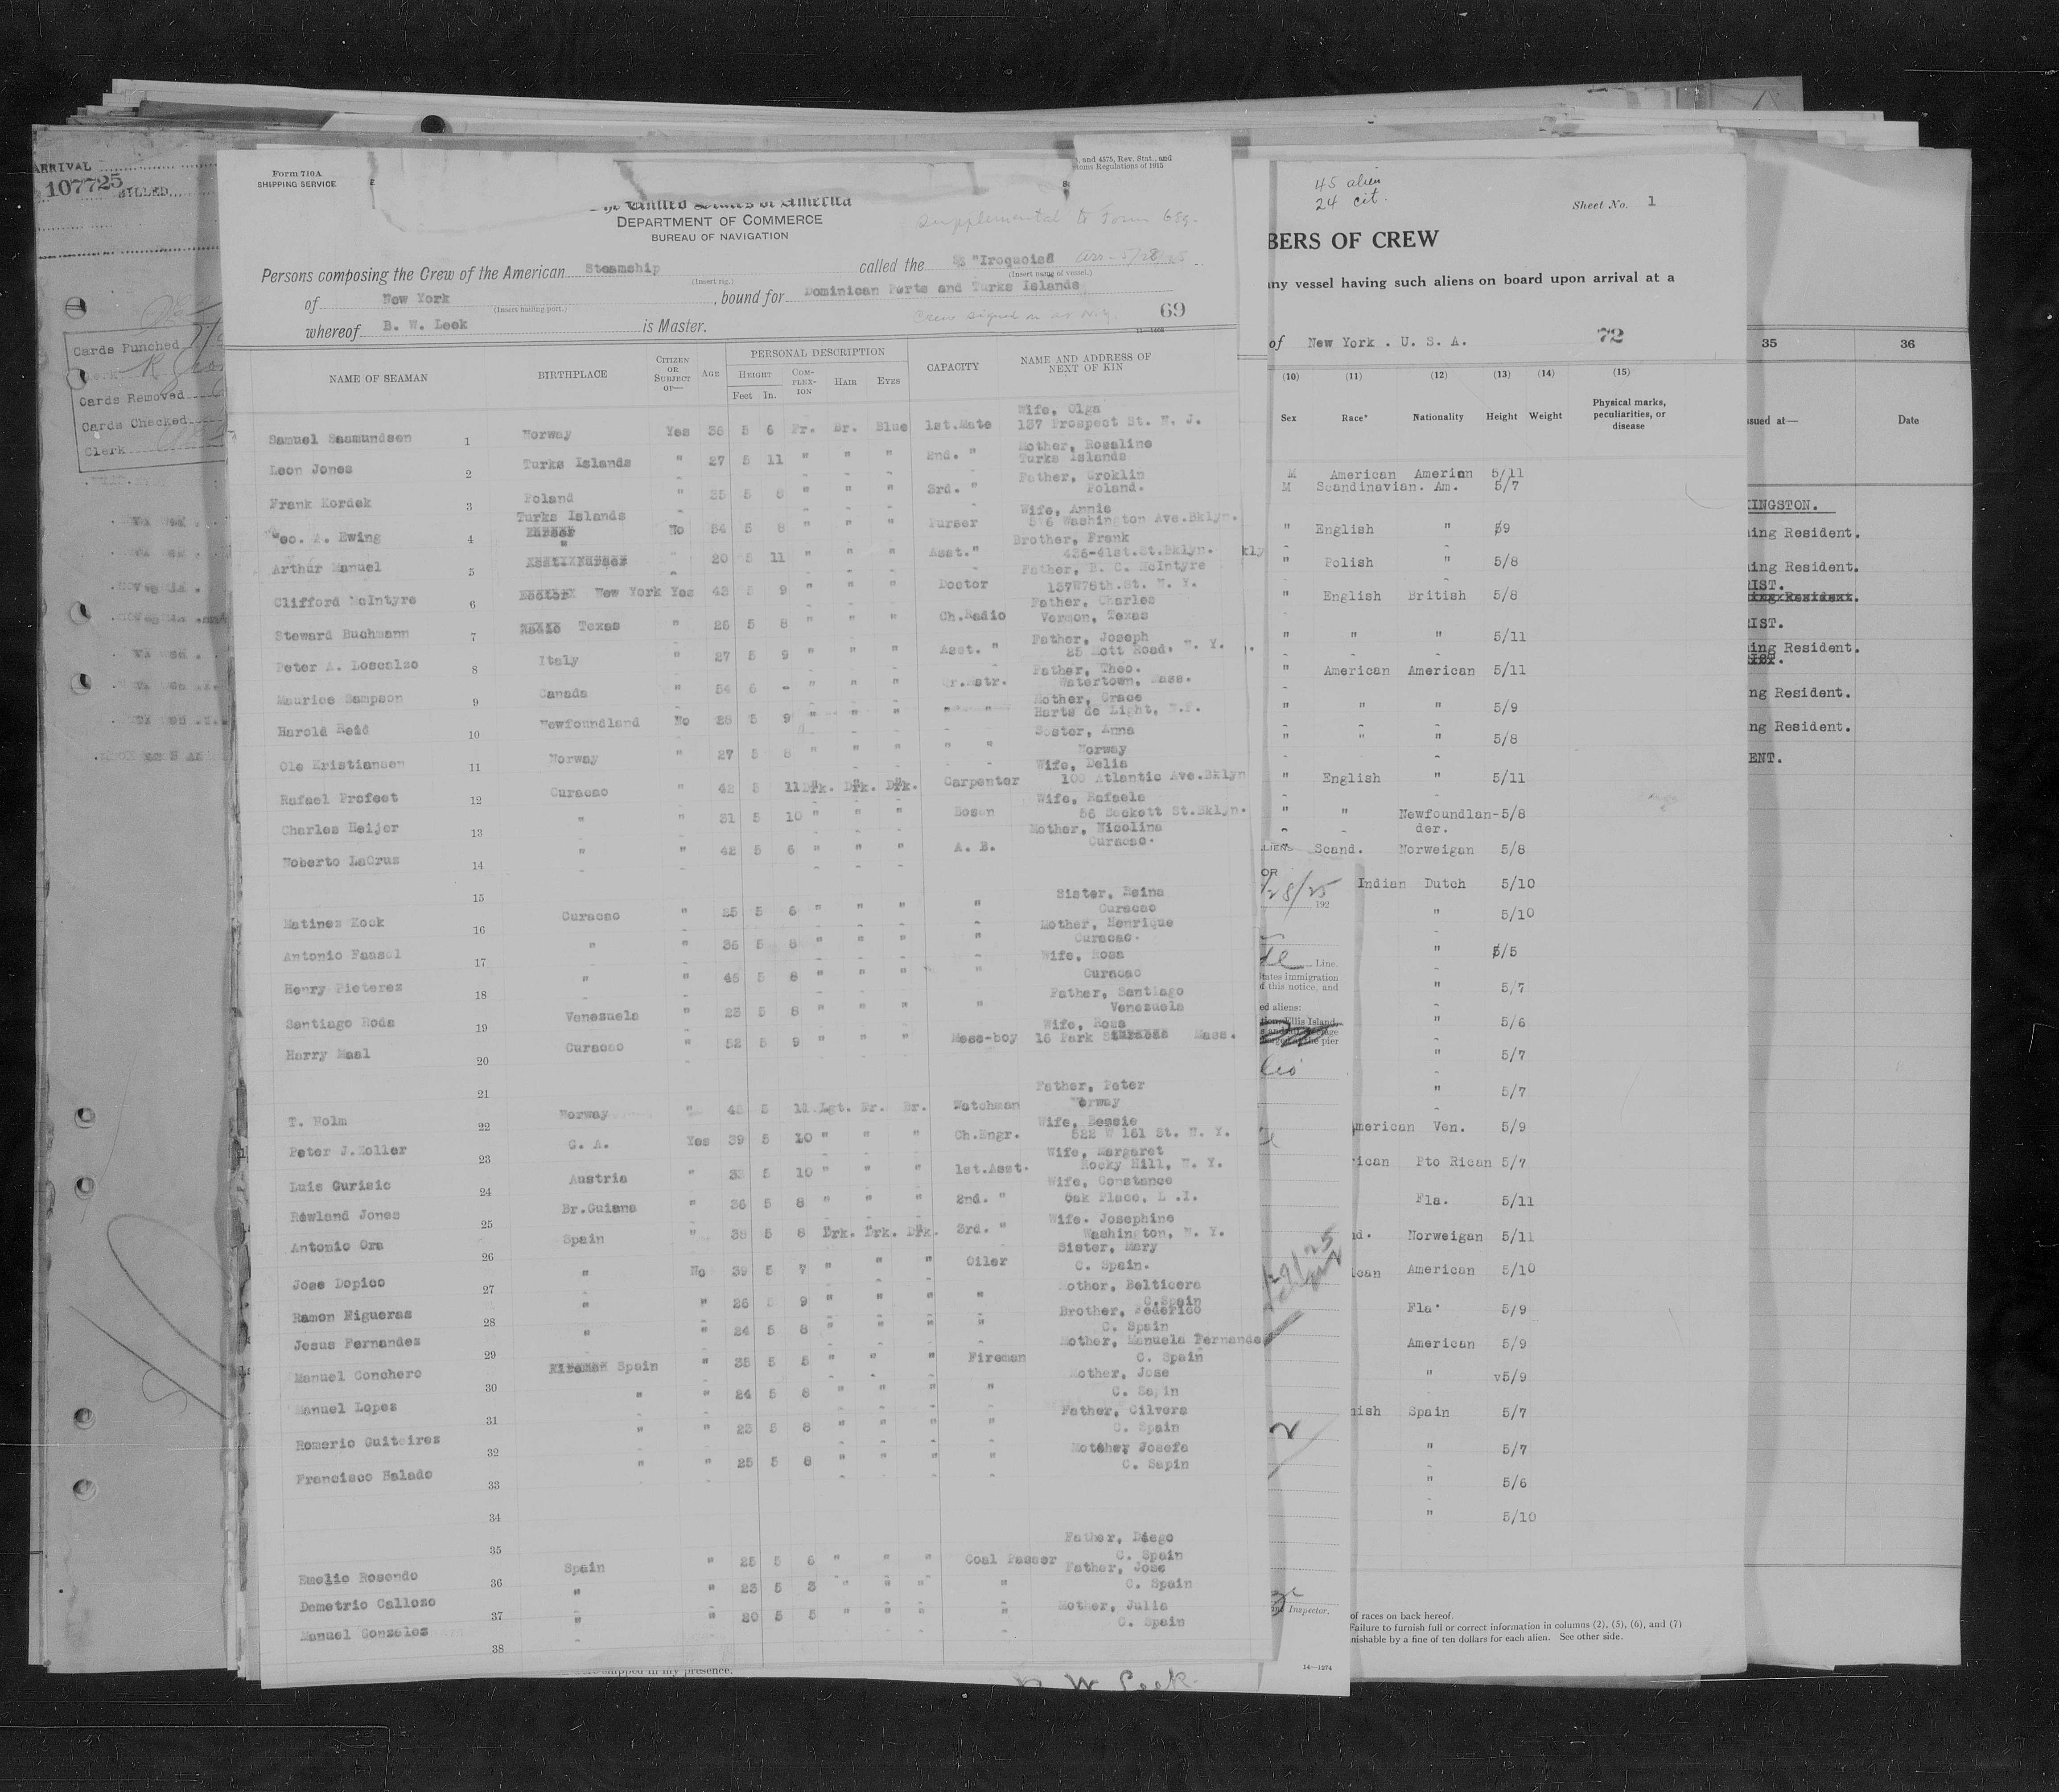 ARRIVAL
107725
FILLED
Cards Punched
Cards Removed
Cards Checked
Clerk
Form 710A
SHIPPING SERVICE
, and 4575, Rev. Stat., and
toms Regulations of 1915
United States of America
DEPARTMENT OF COMMERCE
BUREAU OF NAVIGATION
Supplemental to Form 689.
Persons composing the Crew of the American Steamship called the SS "Iroquois" arr-5/28/25
(Insert rig.) (Insert name of vessel.)
of New York, bound for Dominican Ports and Turks Islands
(Insert hailing port.)
whereof B. W. Leek is Master.
Crew signed on at N.Y.
69
NAME OF SEAMAN BIRTHPLACE CITIZEN OR SUBJECT OF— AGE PERSONAL DESCRIPTION CAPACITY NAME AND ADDRESS OF NEXT OF KIN
HEIGHT COMPLEXION HAIR EYES
Feet In.
Wife, Olga
Samuel Saamundsen 1 Norway Yes 36 5 6 Fr. Br. Blue 1st.Mate 137 Prospect St. N. J.
Mother, Rosaline
Leon Jones 2 Turks Islands " 27 5 11 " " " 2nd. " Turks Islands
Father, Groklin
Frank Kordek 3 Poland " 35 5 8 " " " 3rd. " Poland.
Turks Islands Wife, Annie
Geo. A. Ewing 4 No 54 5 8 " " " Purser 576 Washington Ave.Bklyn.
Brother, Frank
Arthur Manuel 5 " 20 5 11 " " " Asst." 436-41st.St.Bklyn.
Father, B. C. McIntyre
Clifford McIntyre 6 New York Yes 43 5 9 " " " Doctor 137W78th.St. N. Y.
Father, Charles
Steward Buchmann 7 Texas " 26 5 8 " " " Ch.Radio Vermon, Texas
Father, Joseph
Peter A. Loscalzo 8 Italy " 27 5 9 " " " Asst. " 25 Mott Road. N. Y.
Father, Theo.
Maurice Sampson 9 Canada " 54 6 - " " " Qr.Mstr. Watertown, Mass.
Mother, Grace
Harold Reid 10 Newfoundland No 28 5 9 " " " " " Harts de Light, N.F.
Sester, Anna
Ole Kristiansen 11 Norway " 27 5 8 " " " " " Norway
Wife, Delia
Rafael Profeet 12 Curacao " 42 5 11 Drk. Drk. Drk. Carpenter 100 Atlantic Ave.Bklyn
Wife, Rafaela
Charles Heijer 13 " " 31 5 10 " " " Bosen 56 Sackett St.Bklyn.
Mother, Nicolina
Noberto LaCruz 14 " " 42 5 6 " " " A. B. Curacao.
15
Sister, Reina
Matines Kock 16 Curacao " 25 5 6 " " " " Curacao
Mother, Henrique
Antonio Faasol 17 " " 36 5 8 " " " " Curacao.
Wife, Rosa
Henry Pieterez 18 " " 46 5 8 " " " " Curacao
Father, Santiago
Santiago Roda 19 Venezuela " 23 5 8 " " " " Venezuela
Wife, Rosa
Harry Maal 20 Curacao " 52 5 9 " " " Mess-boy 16 Park Mass.
21
Father, Peter
T. Holm 22 Norway " 48 5 11 Lgt. Br. Br. Watchman Norway
Wife, Bessie
Peter J.Koller 23 G. A. Yes 39 5 10 " " " Ch.Engr. 522 W 161 St. N. Y.
Wife, Margaret
Luis Gurisic 24 Austria " 33 5 10 " " " 1st.Asst. Rocky Hill, N. Y.
Wife, Constance
Rowland Jones 25 Br.Guiana " 36 5 8 " " " 2nd. " Oak Place, L .I.
Wife. Josephine
Antonio Ora 26 Spain " 38 5 8 Drk. Drk. Drk. 3rd. " Washington, N. Y.
Sister, Mary
Jose Dopico 27 " No 39 5 7 " " " Oiler C. Spain.
Mother, Balticera
Ramon Figueras 28 " " 26 5 9 " " " " C.Spain
Brother, Federico
Jesus Fernandez 29 " " 24 5 8 " " " " C. Spain
Mother, Manuela Fernande
Manuel Conchero 30 Spain " 35 5 5 " " " Fireman C. Spain
Mother, Jose
Manuel Lopez 31 " " 24 5 8 " " " " C. Sapin
Father, Cilvera
Romerio Guiteirez 32 " " 23 5 8 " " " " C. Spain
Mother Josefa
Francisco Halado 33 " " 25 5 8 " " " " C. Sapin
34
35
Father, Diego
Emelio Rosendo 36 Spain " 25 5 6 " " " Coal Passer C. Spain
Father, Jose
Demetrio Calloso 37 " " 23 5 3 " " " " C. Spain
Mother, Julia
Manuel Gonzalez 38 " " 20 5 5 " " " " C. Spain
shipped in my presence.
B W Leek
45 alien
24 cit.
Sheet No. 1
BERS OF CREW
any vessel having such aliens on board upon arrival at a
of New York . U. S. A. 72
(10) (11) (12) (13) (14) (15)
Sex Race* Nationality Height Weight Physical marks, peculiarities, or disease
M American Amerian 5/11
M Scandinavian. Am. 5/7
" English " 5/9
" Polish " 5/8
" English British 5/8
" " " 5/11
" American American 5/11
" " " 5/9
" " " 5/8
" English " 5/11
" " Newfoundlan- 5/8
der.
" Scand. Norweigan 5/8
Indian Dutch 5/10
" 5/10
" 5/5
" 5/7
" 5/6
" 5/7
" 5/7
merican Ven. 5/9
rican Pto Rican 5/7
Fla. 5/11
nd. Norweigan 5/11
ican American 5/10
Fla. 5/9
American 5/9
" v5/9
nish Spain 5/7
" 5/7
" 5/6
" 5/10
of races on back hereof.
Failure to furnish full or correct information in columns (2), (5), (6), and (7)
nishable by a fine of ten dollars for each alien. See other side.
28/25
192
Line.
tates immigration
f this notice, and
ed aliens:
Ellis Island,
the pier
Inspector.
14—1274
35 36
ssued at— Date
KINGSTON.
ning Resident.
ning Resident.
RIST.
RIST.
ning Resident.
ng Resident.
ng Resident.
ENT.